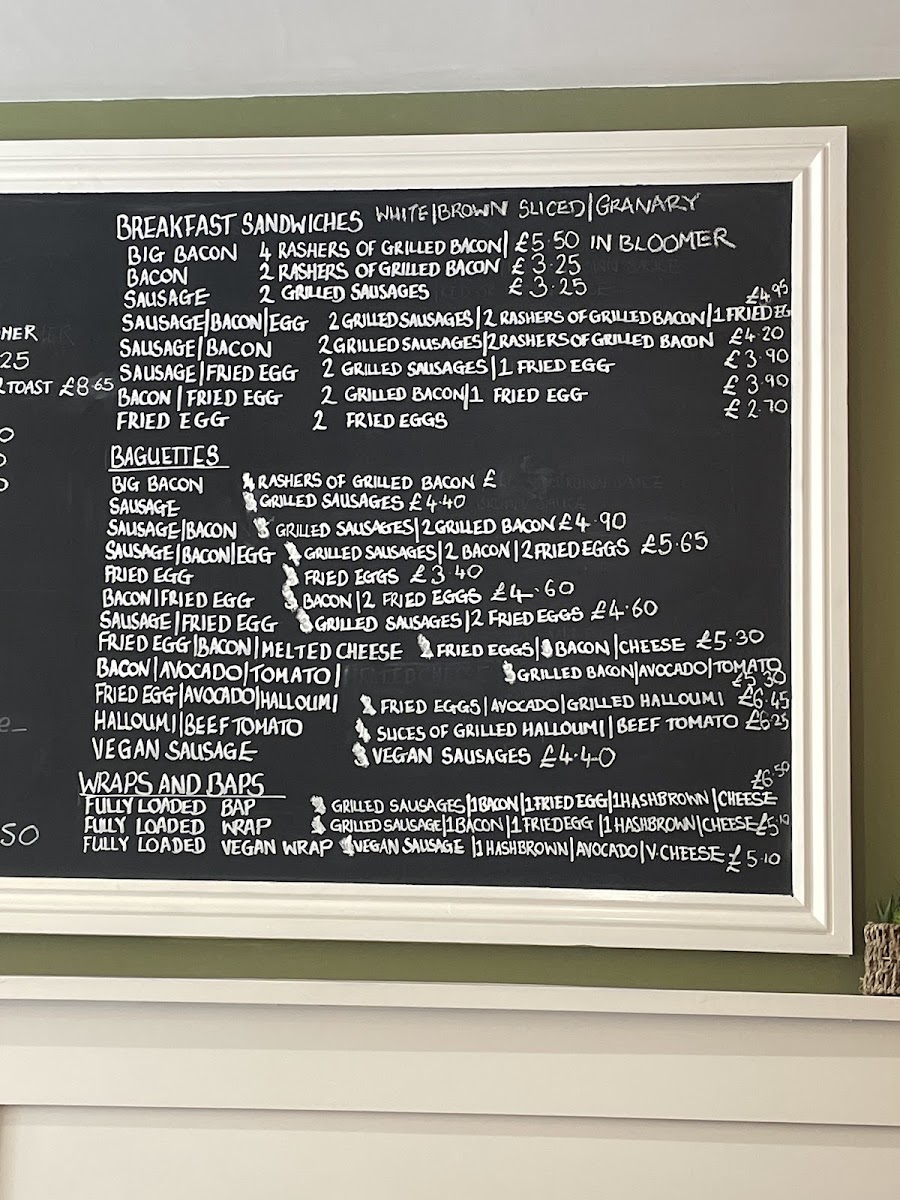 BREAKFAST SANDWICHES WHITE|BROWN SLICED|GRANARY
BIG BACON 4 RASHERS OF GRILLED BACON| £5.50 IN BLOOMER
BACON 2 RASHERS OF GRILLED BACON £3.25
SAUSAGE 2 GRILLED SAUSAGES £3.25
SAUSAGE|BACON|EGG 2 GRILLED SAUSAGES|2 RASHERS OF GRILLED BACON|1 FRIED EG £4.95
SAUSAGE|BACON 2 GRILLED SAUSAGES|2 RASHERS OF GRILLED BACON £4.20
SAUSAGE|FRIED EGG 2 GRILLED SAUSAGES|1 FRIED EGG £3.90
BACON|FRIED EGG 2 GRILLED BACON|1 FRIED EGG £3.90
FRIED EGG 2 FRIED EGGS £2.70
BAGUETTES
BIG BACON RASHERS OF GRILLED BACON £
SAUSAGE GRILLED SAUSAGES £4.40
SAUSAGE|BACON GRILLED SAUSAGES|2 GRILLED BACON £4.90
SAUSAGE|BACON|EGG GRILLED SAUSAGES|2 BACON|2 FRIED EGGS £5.65
FRIED EGG FRIED EGGS £3.40
BACON|FRIED EGG BACON|2 FRIED EGGS £4.60
SAUSAGE|FRIED EGG GRILLED SAUSAGES|2 FRIED EGGS £4.60
FRIED EGG|BACON|MELTED CHEESE FRIED EGGS| BACON|CHEESE £5.30
BACON|AVOCADO|TOMATO| GRILLED BACON|AVOCADO|TOMATO £5.30
FRIED EGG|AVOCADO|HALLOUMI FRIED EGGS|AVOCADO|GRILLED HALLOUMI £6.45
HALLOUMI|BEEF TOMATO SLICES OF GRILLED HALLOUMI|BEEF TOMATO £6.25
VEGAN SAUSAGE VEGAN SAUSAGES £4.40
WRAPS AND BAPS
FULLY LOADED BAP GRILLED SAUSAGES|1 BACON|1 FRIED EGG|1 HASHBROWN|CHEESE £6.50
FULLY LOADED WRAP GRILLED SAUSAGE|1 BACON|1 FRIED EGG|1 HASHBROWN|CHEESE £5.10
FULLY LOADED VEGAN WRAP VEGAN SAUSAGE|1 HASHBROWN|AVOCADO|V.CHEESE £5.10
HER
25
TOAST £8.65
0
0
0
50